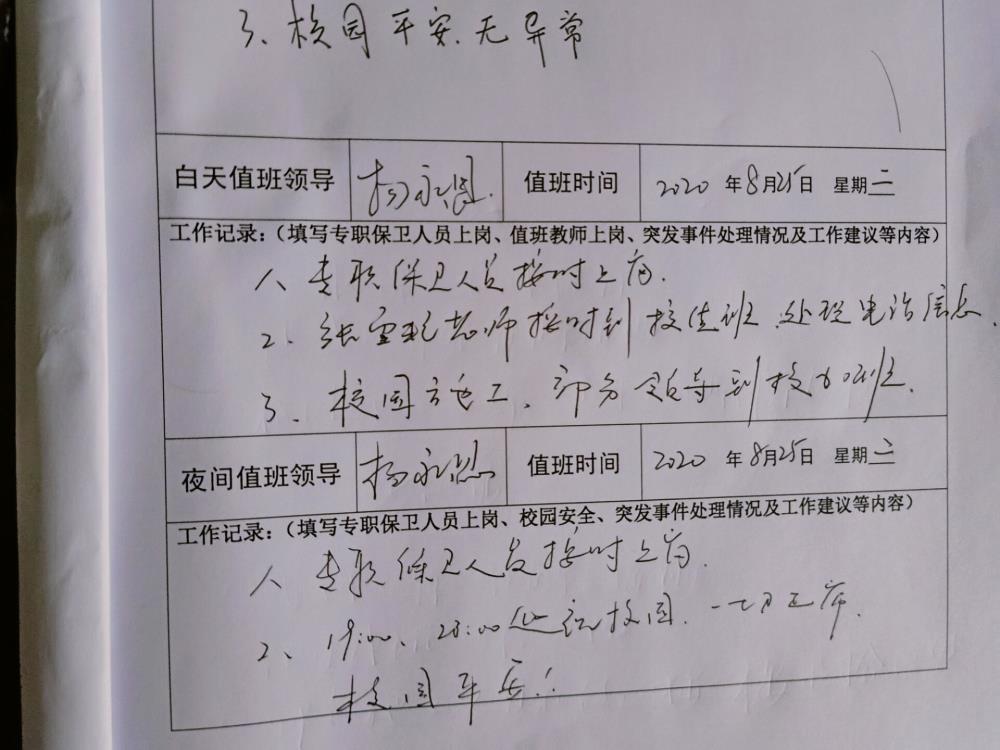 3、校园平安、无异常
白天值班领导 杨永恩 值班时间 2020 年 8 月 25 日 星期 二
工作记录：（填写专职保卫人员上岗、值班教师上岗、突发事件处理情况及工作建议等内容）
1、专职保卫人员按时上岗.
2、张雪 老师按时到校值班、处理电话信息.
3、校园施工、部分领导到校加班.
夜间值班领导 杨永恩 值班时间 2020 年 8 月 25 日 星期 二
工作记录：（填写专职保卫人员上岗、校园安全、突发事件处理情况及工作建议等内容）
1、专职保卫人员按时上岗.
2、19:00、23:00巡视校园.一切正常.
校园平安！